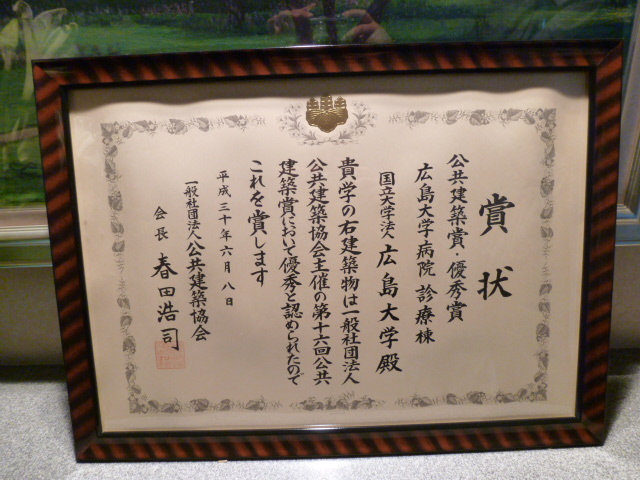 賞状
公共建築賞・優秀賞
広島大学病院 診療棟
国立大学法人 広島大学殿
貴学の右建築物は一般社団法人
公共建築協会主催の第十六回公共
建築賞において優秀と認められたので
これを賞します
平成三十年六月八日
一般社団法人公共建築協会
会長 春田浩司